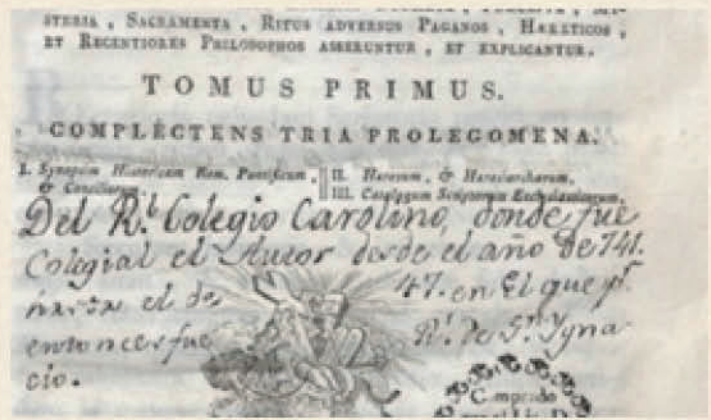 STERIA, SACRAMENTA, RITUS ADVERSUS PAGANOS, HÆRETICOS,
ET RECENTIORES PHILOSOPHOS ASSERUNTUR, ET EXPLICANTUR.
TOMUS PRIMUS.
COMPLECTENS TRIA PROLEGOMENA.
I. Synopsim Historicam Rom. Pontificum, & Conciliorum.
II. Hæresum, & Hæresiarcharum,
III. Catalogum Scriptorum Ecclesiasticorum,
Del R.l Colegio Carolino, donde fue
Colegial el Autor desde el año de 741.
hasta el de 47. en El que p.r
entonces fue R.l de S.n Ygna
cio.